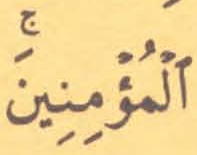 ٱلْمُؤْمِنِينَۚ